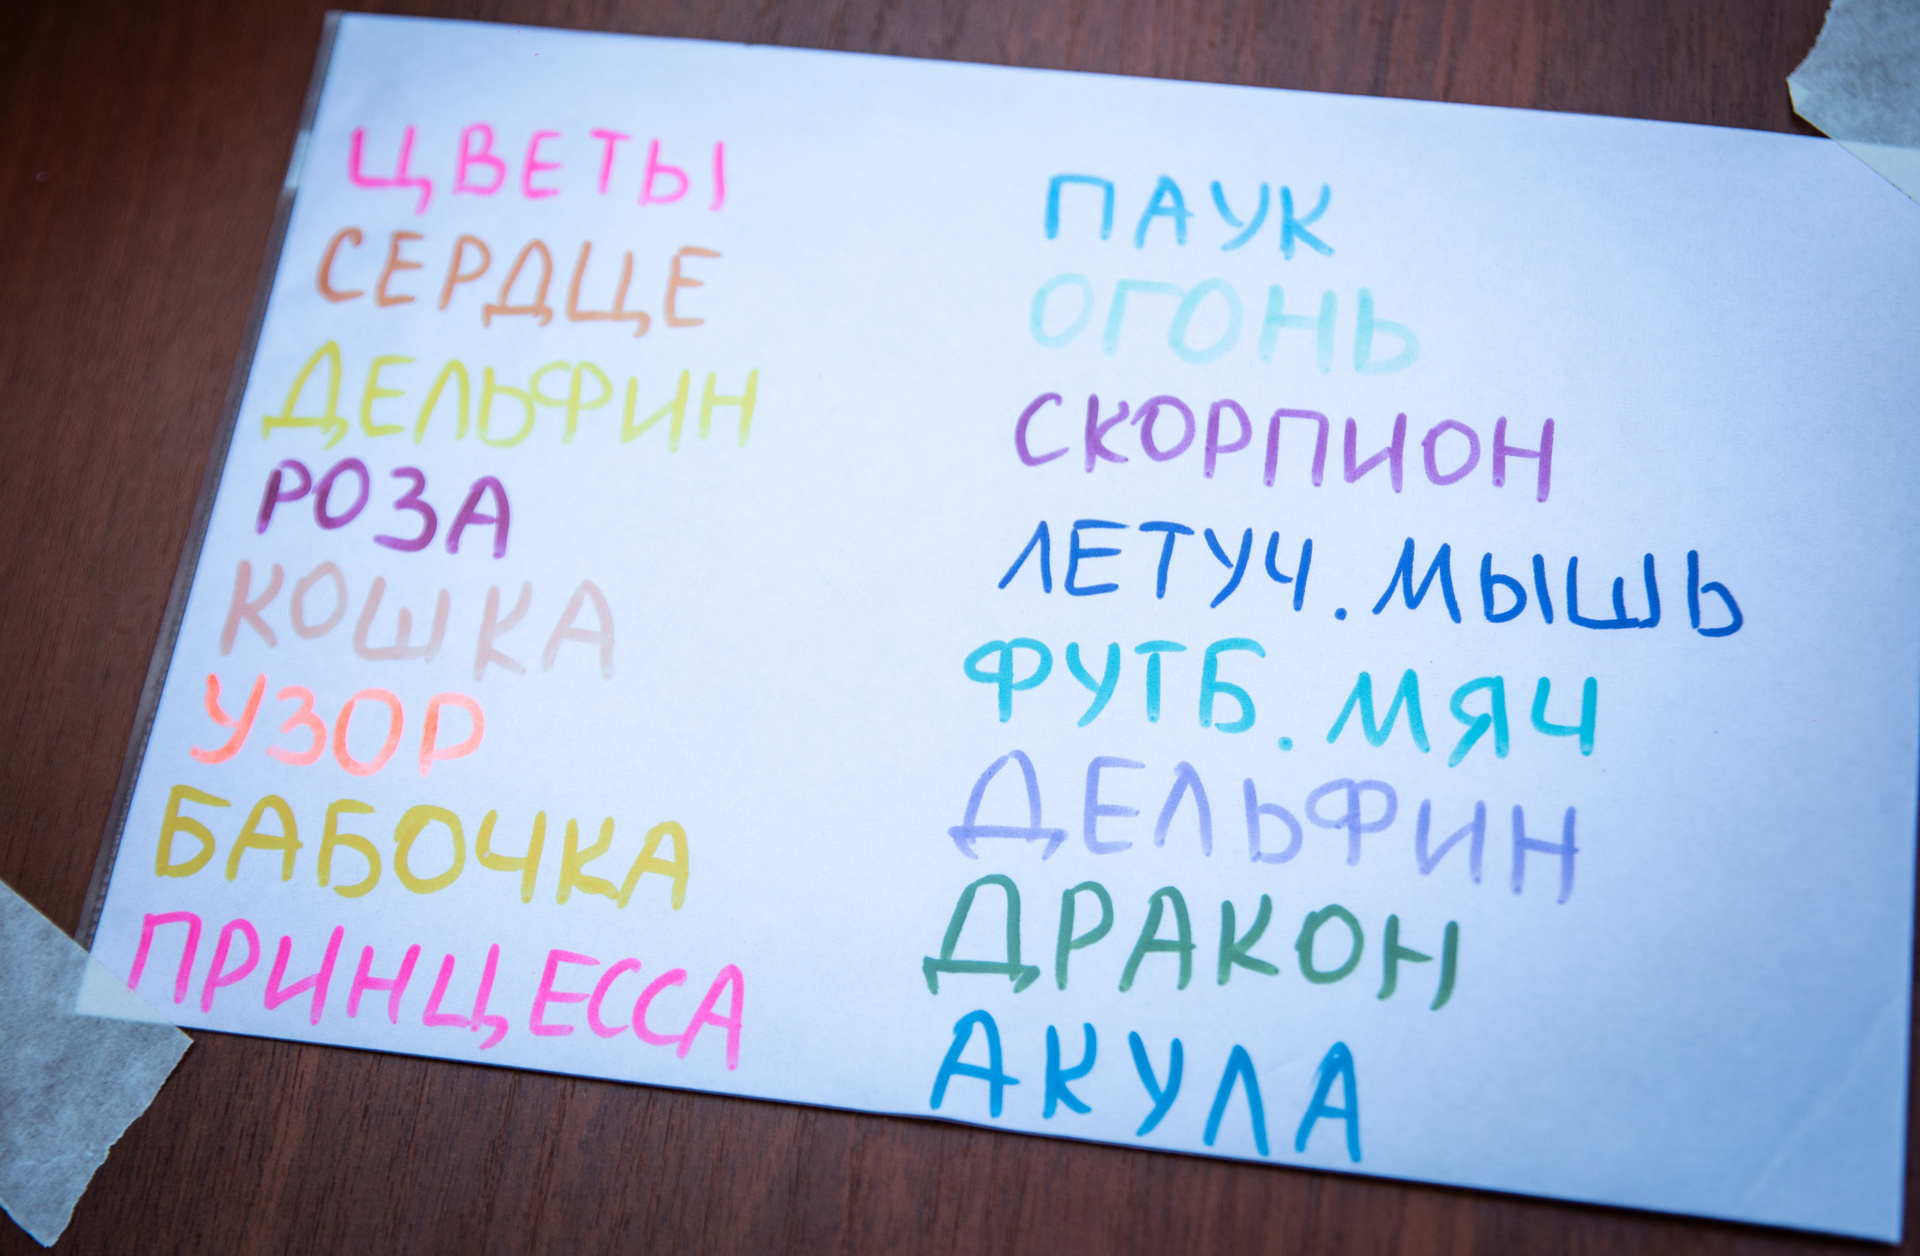 ЦВЕТЫ
СЕРДЦЕ
ДЕЛЬФИН
РОЗА
КОШКА
УЗОР
БАБОЧКА
ПРИНЦЕССА
ПАУК
ОГОНЬ
СКОРПИОН
ЛЕТУЧ. МЫШЬ
ФУТБ. МЯЧ
ДЕЛЬФИН
ДРАКОН
АКУЛА